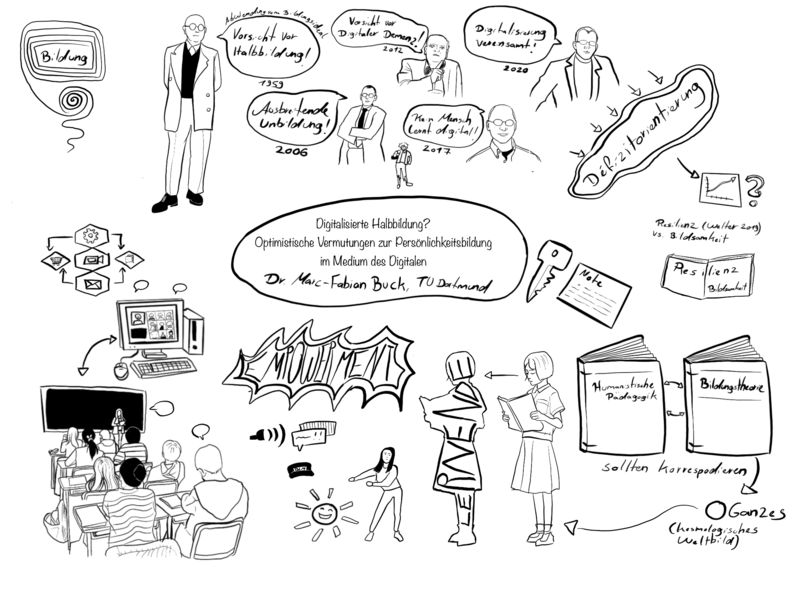 Bildung
Abwendung vom Bildungsideal
Vorsicht vor
Halbbildung!
1959
Vorsicht vor
Digitaler Demenz!
2012
Digitalisierung
vereinsamt!
2020
Ausbreitende
Unbildung!
2006
Kein Mensch
lernt digital!
2017
Défizitorientierung
?
Resilienz (Walter 2019)
vs. Bildsamkeit
Resilienz
Bildsamkeit
Digitalisierte Halbbildung?
Optimistische Vermutungen zur Persönlichkeitsbildung
im Medium des Digitalen
Dr. Marc-Fabian Buck, TU Dortmund
Note
EMPOWERMENT
LERNENDE
Humanistische
Pädagogik
Bildungstheorie
sollten korrespodieren
Ganzes
(kosmologisches
Weltbild)